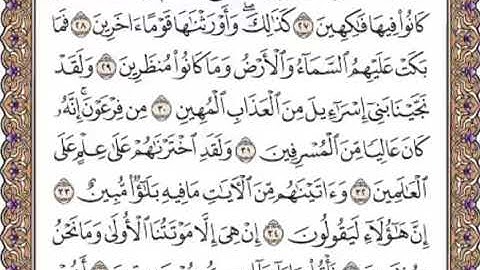 كَانُوا۟ فِيهَا فَـٰكِهِينَ ٢٧ كَذَٰلِكَ ۖ وَأَوْرَثْنَـٰهَا قَوْمًا ءَاخَرِينَ ٢٨ فَمَا
بَكَتْ عَلَيْهِمُ ٱلسَّمَآءُ وَٱلْأَرْضُ وَمَا كَانُوا۟ مُنظَرِينَ ٢٩ وَلَقَدْ
نَجَّيْنَا بَنِىٓ إِسْرَٰٓءِيلَ مِنَ ٱلْعَذَابِ ٱلْمُهِينِ ٣٠ مِن فِرْعَوْنَ ۚ إِنَّهُۥ
كَانَ عَالِيًا مِّنَ ٱلْمُسْرِفِينَ ٣١ وَلَقَدِ ٱخْتَرْنَـٰهُمْ عَلَىٰ عِلْمٍ عَلَى
ٱلْعَـٰلَمِينَ ٣٢ وَءَاتَيْنَـٰهُم مِّنَ ٱلْـَٔايَـٰتِ مَا فِيهِ بَلَـٰٓؤٌا۟ مُّبِينٌ ٣٣
إِنَّ هَـٰٓؤُلَآءِ لَيَقُولُونَ ٣٤ إِنْ هِىَ إِلَّا مَوْتَتُنَا ٱلْأُولَىٰ وَمَا نَحْنُ